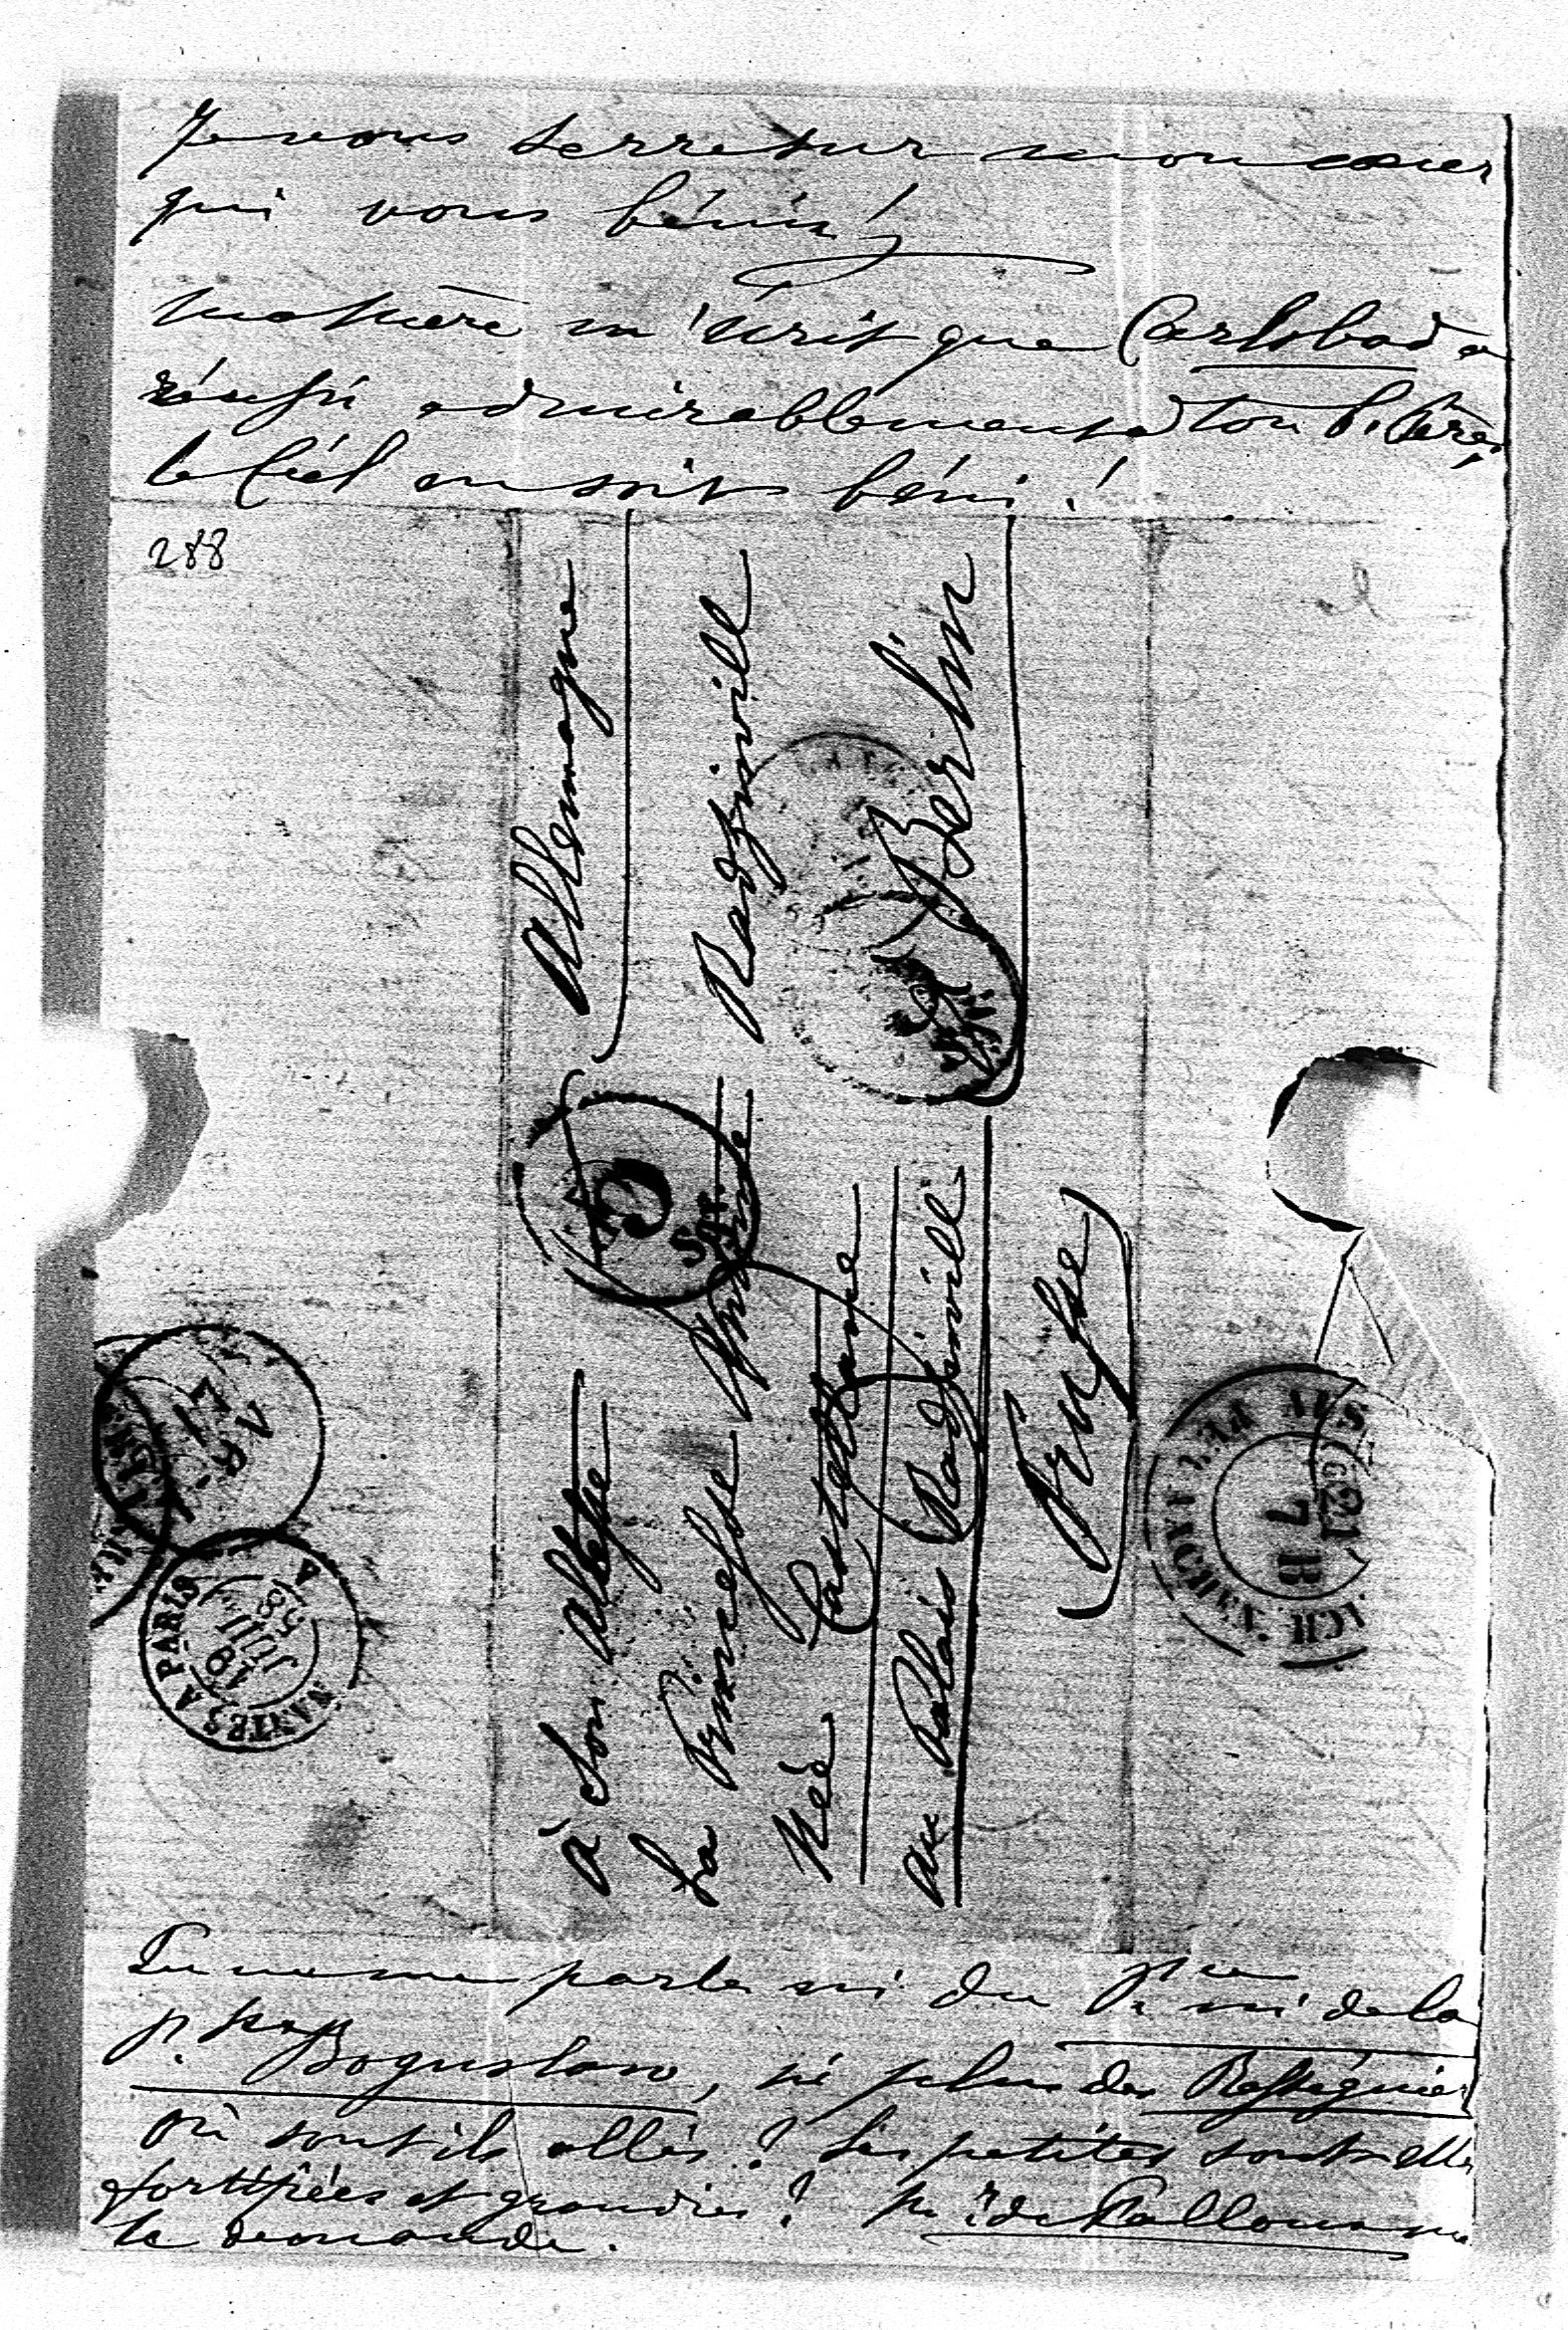 Je vous serre sur mon cœur
qui vous bénit!
Ma mère m'écrit que Carlsbad a
réussi admirablement à ton b. Père,
le Ciel en soit béni!
288
Allemagne
à Son Altesse
la Princesse Radziwill
Née Castellane
au Palais Radziwill
Berlin
Prusse
NANTES A PARIS
8 JUIL
Tu ne me parles ni du Pce ni de la
p. sse Boguslaw, ni plus des Rességuier
où sont ils allés? Les petites sont elles
fortifiées et grandies? Mr de Falloux me
le demande.